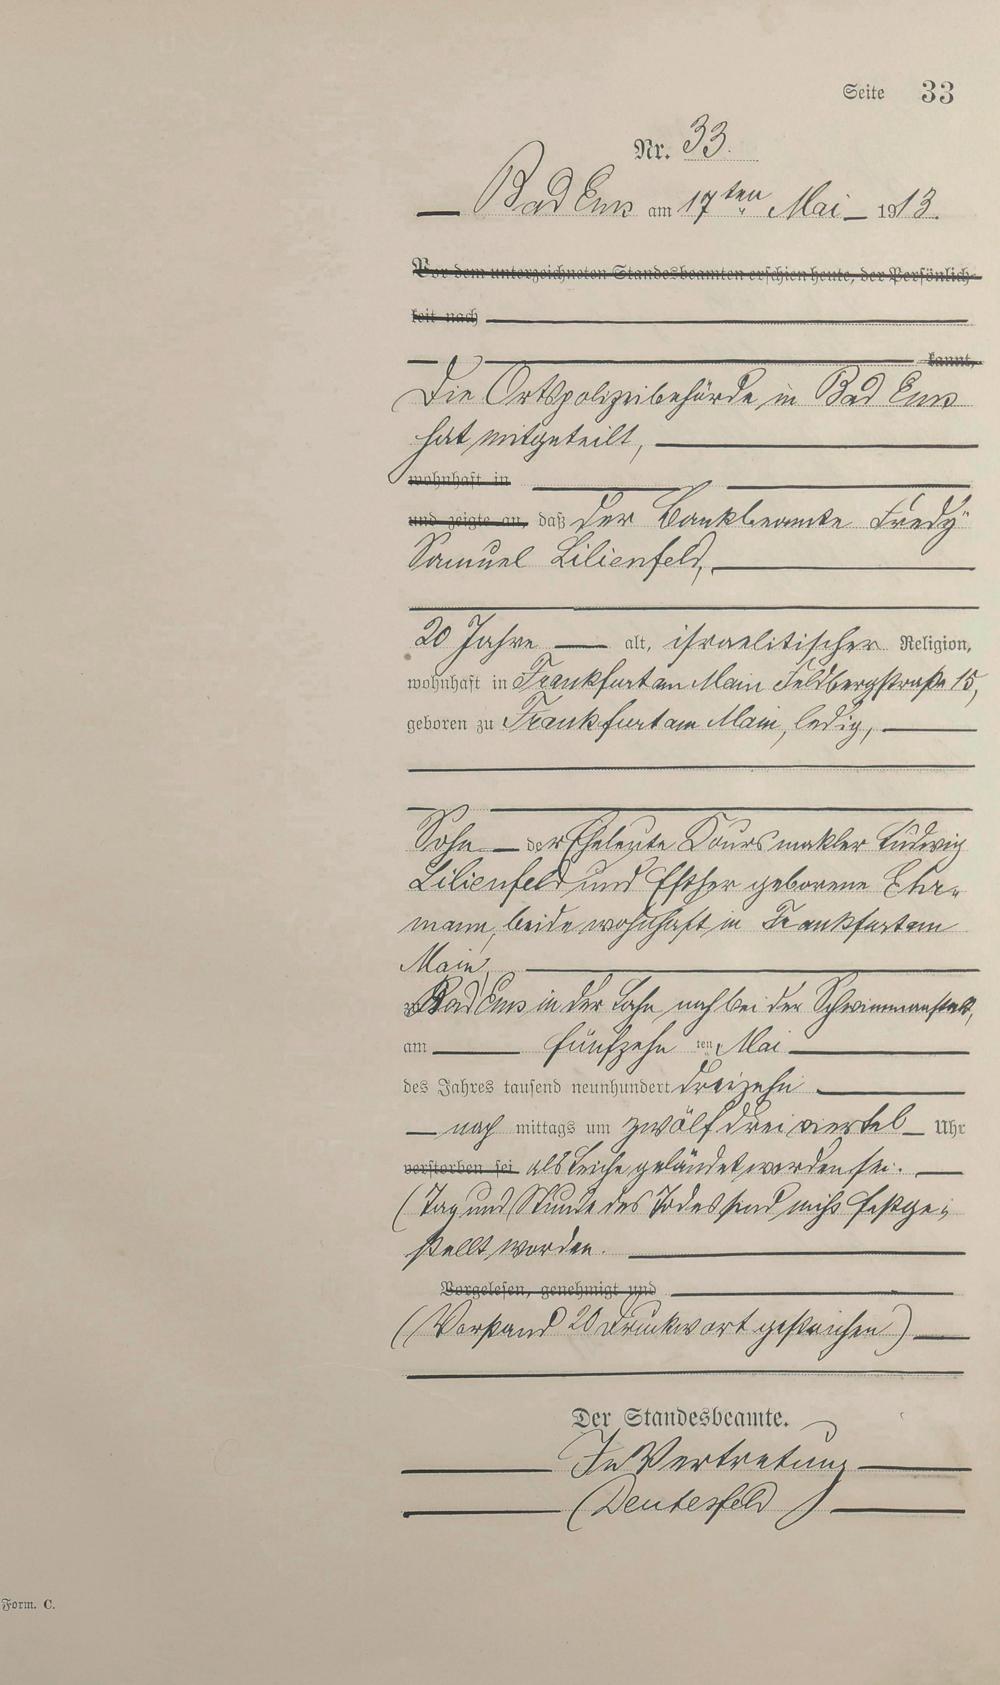 Seite 33
Nr. 33.
Bad Ems am 17ten Mai 1913.
Vor dem unterzeichneten Standesbeamten erschien heute, der Persönlich-
keit nach
kannt,
Die Ortspolizeibehörde in Bad Ems
hat mitgeteilt,
wohnhaft in
und zeigte an, daß der Bankbeamte Fredy
Samuel Lilienfeld,
20 Jahre alt, israelitischer Religion,
wohnhaft in Frankfurt am Main Feldbergstraße 15,
geboren zu Frankfurt am Main, ledig,
Sohn der Eheleute Kursmakler Ludwig
Lilienfeld und Esther geborene Ehr-
mann, beide wohnhaft in Frankfurt am
Main
zu Bad Ems in der Lahn nach bei der Schwimmanstalt,
am fünfzehn ten Mai
des Jahres tausend neunhundert dreizehn
nach mittags um zwölf dreiviertel Uhr
verstorben sei als Leiche geländet worden sei.
(Tag und Stunde des Todes sind nicht festge-
stellt worden.
Vorgelesen, genehmigt und
(Vorstand 20 Druckwort gestrichen)
Der Standesbeamte.
In Vertretung